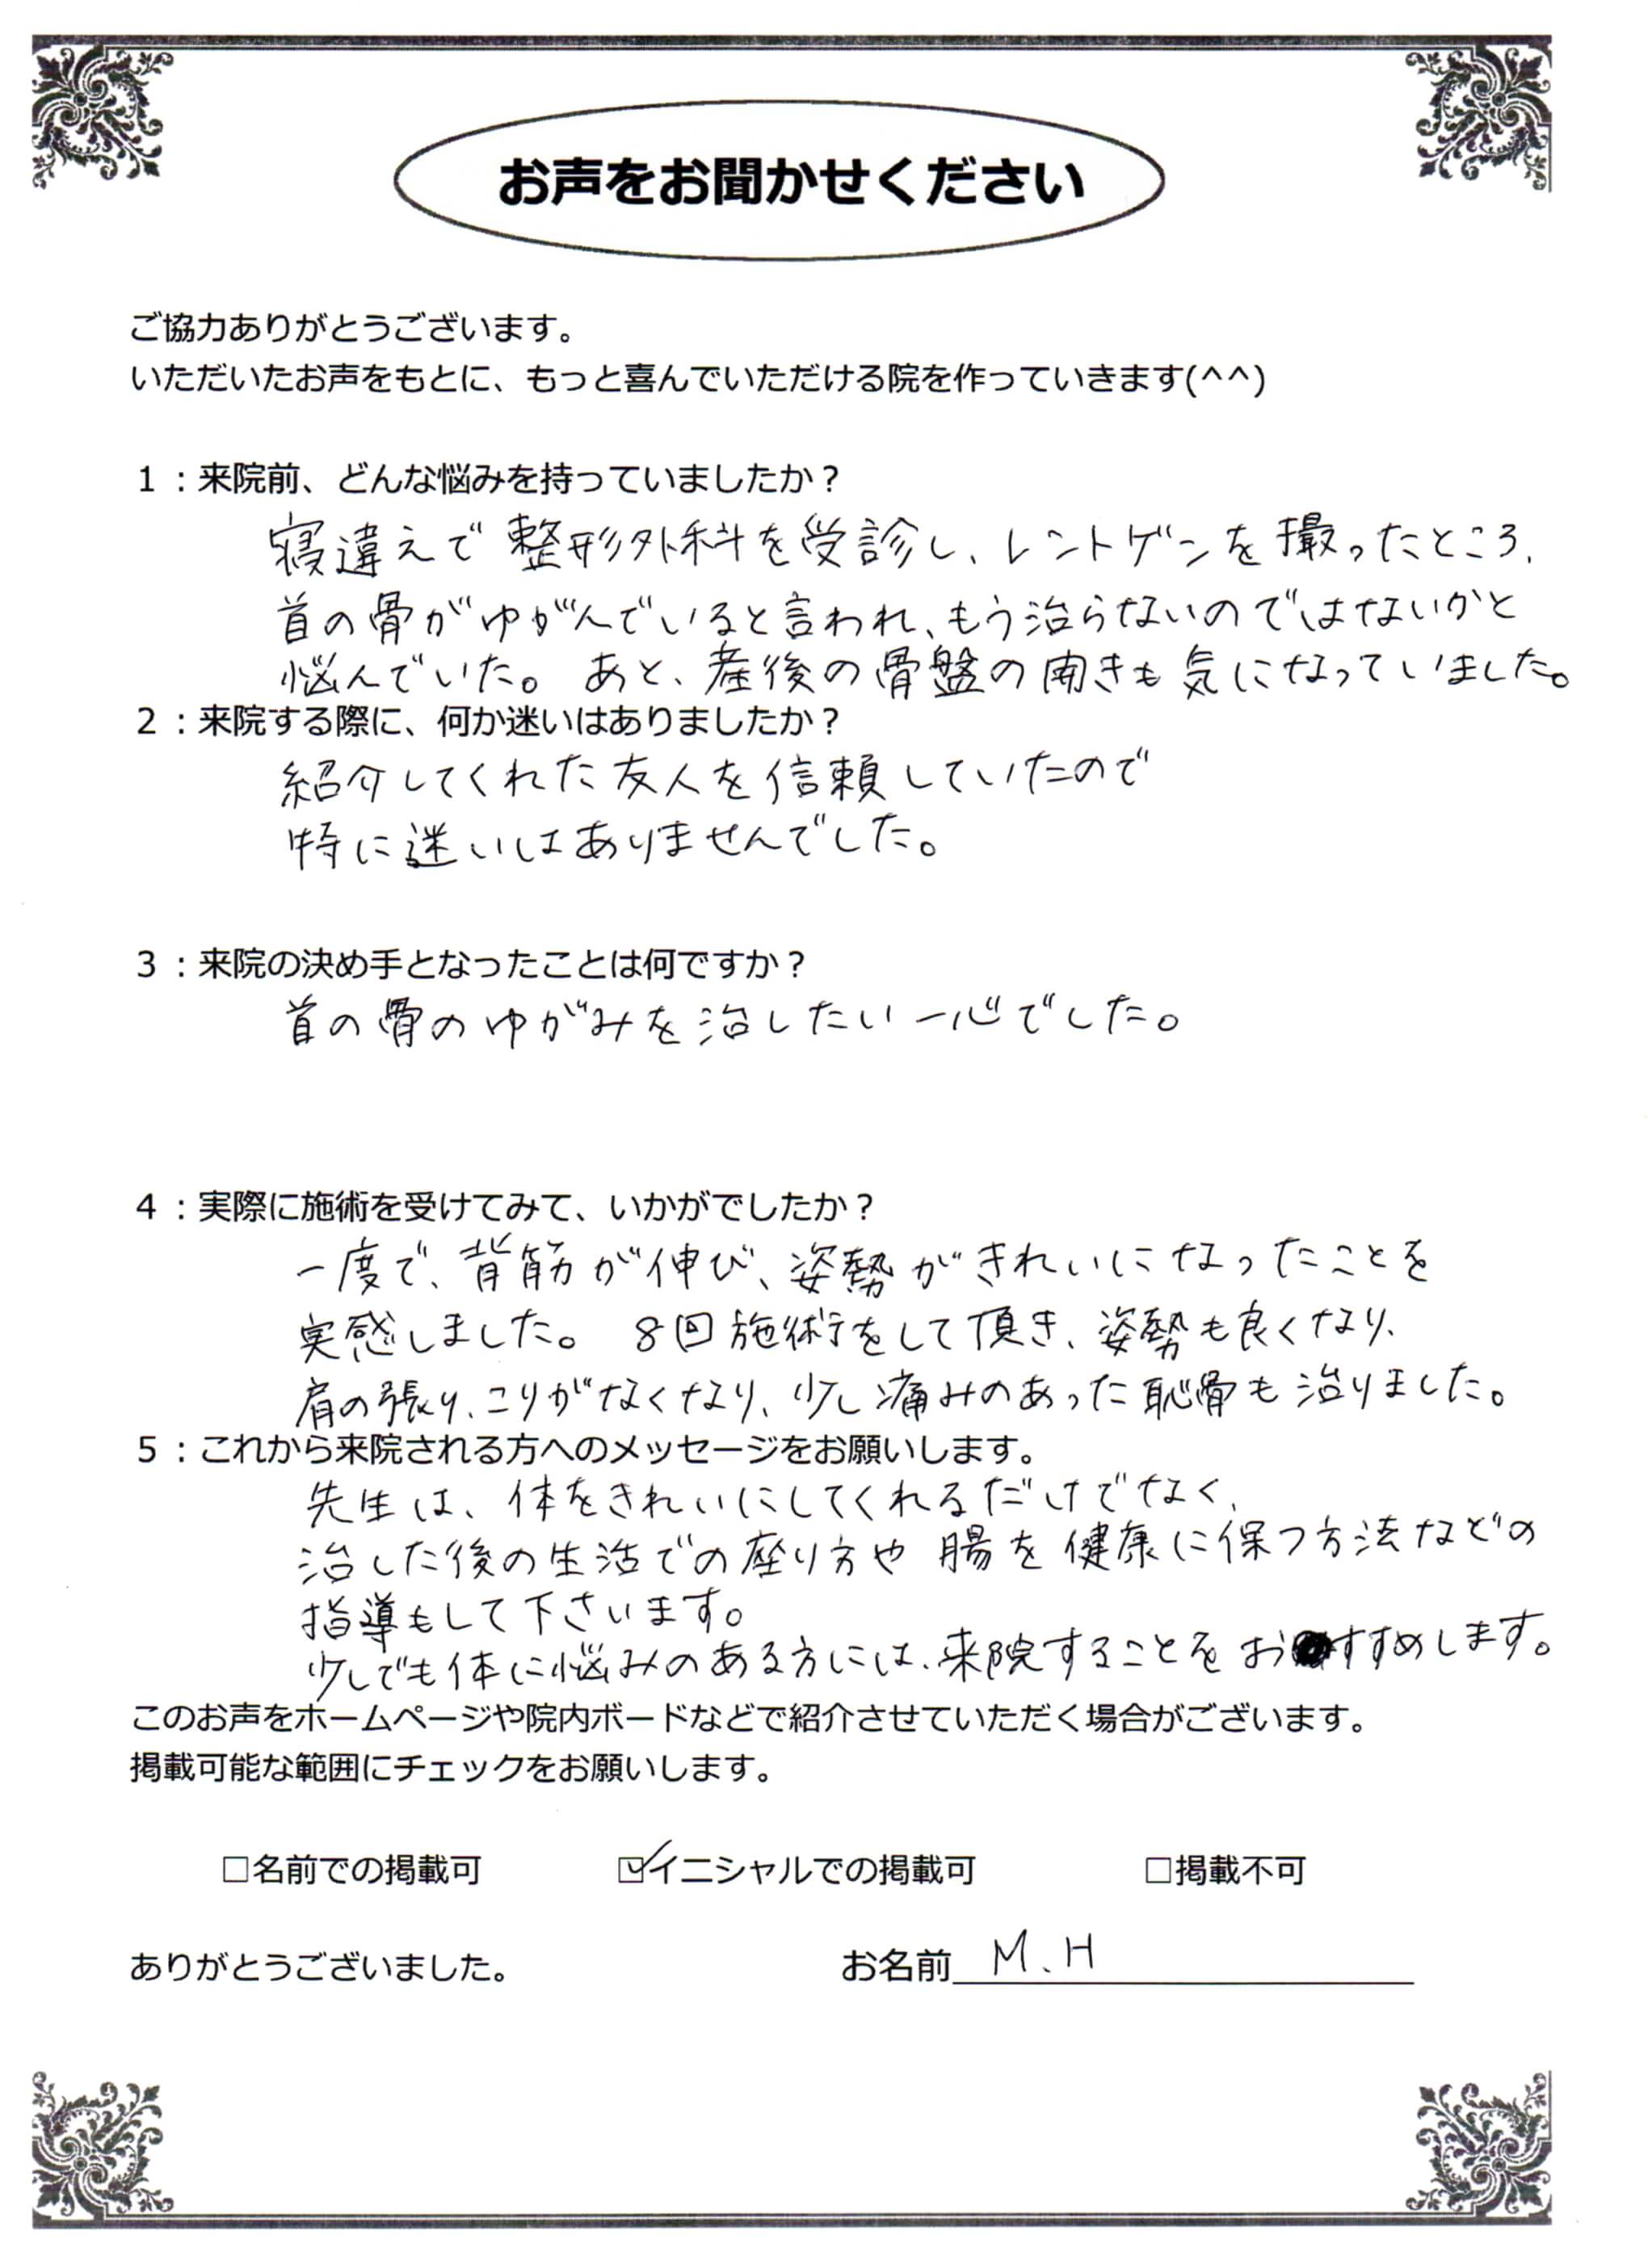 お声をお聞かせください
ご協力ありがとうございます。
いただいたお声をもとに、もっと喜んでいただける院を作っていきます(^^)
１：来院前、どんな悩みを持っていましたか？
寝違えで整形外科を受診し、レントゲンを撮ったところ、
首の骨がゆがんでいると言われ、もう治らないのではないかと
悩んでいた。あと、産後の骨盤の開きも気になっていました。
２：来院する際に、何か迷いはありましたか？
紹介してくれた友人を信頼していたので
特に迷いはありませんでした。
３：来院の決め手となったことは何ですか？
首の骨のゆがみを治したい一心でした。
４：実際に施術を受けてみて、いかがでしたか？
一度で、背筋が伸び、姿勢がきれいになったことを
実感しました。8回施術をして頂き、姿勢も良くなり、
肩の張り、こりがなくなり、少し痛みのあった恥骨も治りました。
５：これから来院される方へのメッセージをお願いします。
先生は、体をきれいにしてくれるだけでなく、
治した後の生活での座り方や腸を健康に保つ方法などの
指導もして下さいます。
少しでも体に悩みのある方には、来院することをおすすめします。
このお声をホームページや院内ボードなどで紹介させていただく場合がございます。
掲載可能な範囲にチェックをお願いします。
□名前での掲載可 ☑イニシャルでの掲載可 □掲載不可
ありがとうございました。 お名前 M.H